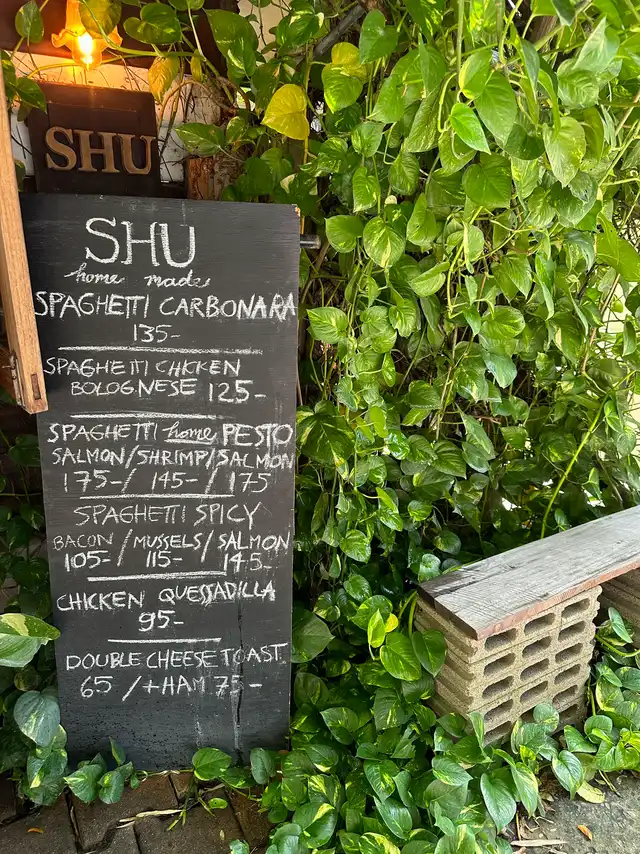 SHU
SHU
home made
SPAGHETTI CARBONARA
135-
SPAGHETTI CHICKEN
BOLOGNESE 125-
SPAGHETTI home PESTO
SALMON/SHRIMP/SALMON
175-/ 145-/ 175
SPAGHETTI SPICY
BACON / MUSSELS / SALMON
105- / 115- / 145-
CHICKEN QUESSADILLA
95-
DOUBLE CHEESE TOAST
65 /+HAM 75-